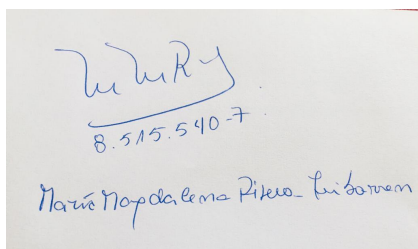 8.515.540-7
María Magdalena Risero- Iribarren